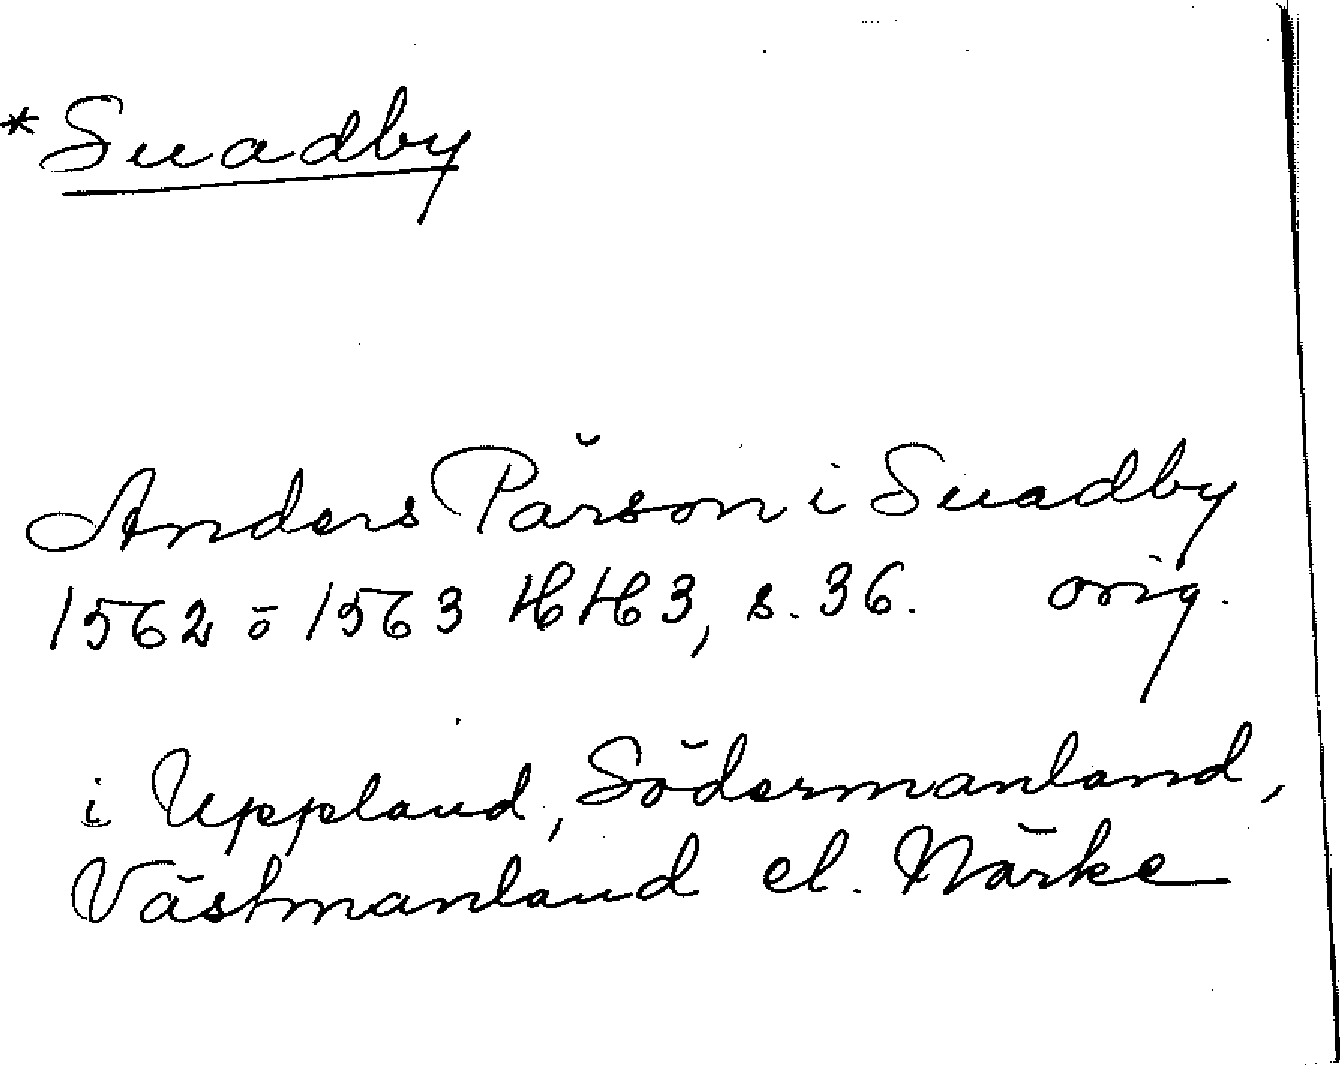 *Suadby
Anders Pärson i Suadby
1562 ö 1563 HH 3, s. 36. orig.
i Uppland, Södermanland,
Västmanland el. Närke